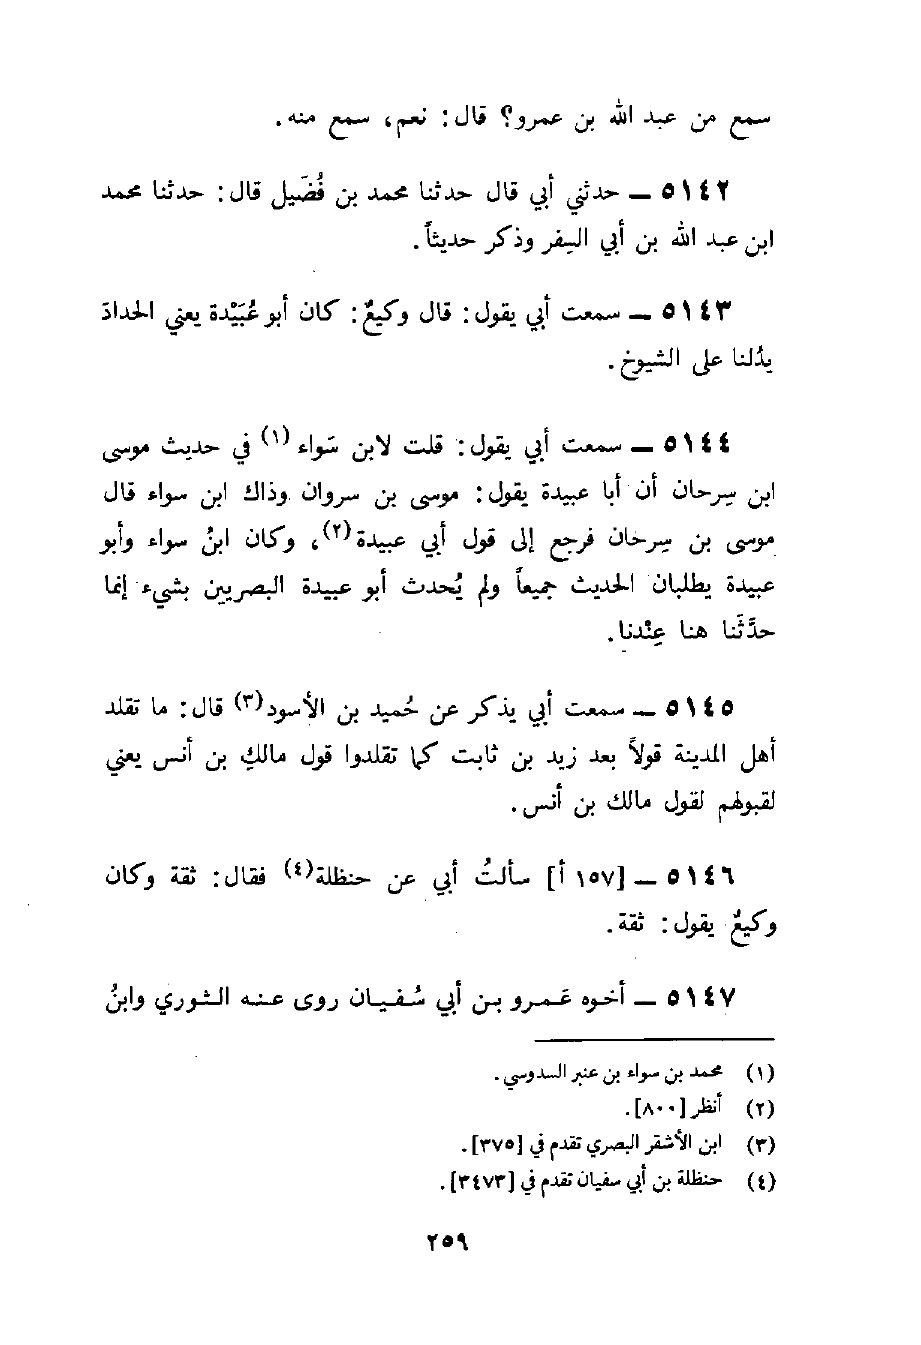 سمع من عبد الله بن عمرو؟ قال: نعم، سمع منه.
٥١٤٢ ـ حدثني أبي قال حدثنا محمد بن فُضَيل قال: حدثنا محمد
ابن عبد الله بن أبي السفر وذكر حديثاً.
٥١٤٣ ـ سمعت أبي يقول: قال وكيعٌ: كان أبو عُبَيْدة يعني الحدادَ
يدُلنا على الشيوخ.
٥١٤٤ ـ سمعت أبي يقول: قلت لابن سَواء (١) في حديث موسى
ابن سِرحان أن أبا عبيدة يقول: موسى بن سروان وذاك ابن سواء قال
موسى بن سرحان فرجع إلى قول أبي عبيدة(٢)، وكان ابنُ سواء وأبو
عبيدة يطلبان الحديث جميعاً ولم يُحدث أبو عبيدة البصريين بشيء إنما
حدَّثَنا هنا عِنْدنا.
٥١٤٥ ـ سمعت أبي يذكر عن حُميد بن الأسود(٣) قال: ما تقلد
أهل المدينة قولاً بعد زيد بن ثابت كما تقلدوا قول مالكِ بن أنس يعني
لقبولهم لقول مالك بن أنس.
٥١٤٦ ـ [١٥٧ أ] سألتُ أبي عن حنظلة(٤) فقال: ثقة وكان
وكيعٌ يقول: ثقة.
٥١٤٧ ـ أخوه عَمرو بن أبي سُفيان روى عنه الثوري وابنُ
(١) محمد بن سواء بن عنبر السدوسي.
(٢) أنظر [٨٠٠].
(٣) ابن الأشقر البصري تقدم في [٣٧٥].
(٤) حنظلة بن أبي سفيان تقدم في [٣٤٧٣].
٢٥٩